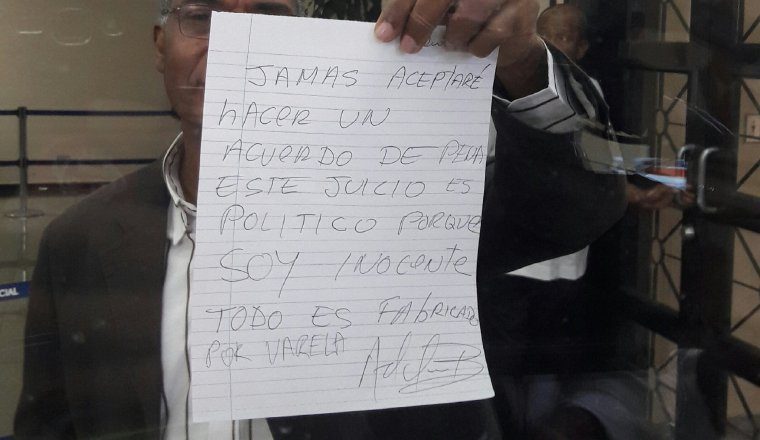 JAMAS ACEPTARÉ
hACER UN
ACUERDO DE PENA
ESTE JUICIO ES
POLITICO PORQUE
SOY INOCENTE
TODO ES FAbRICADO
POR VARELA
CIAL